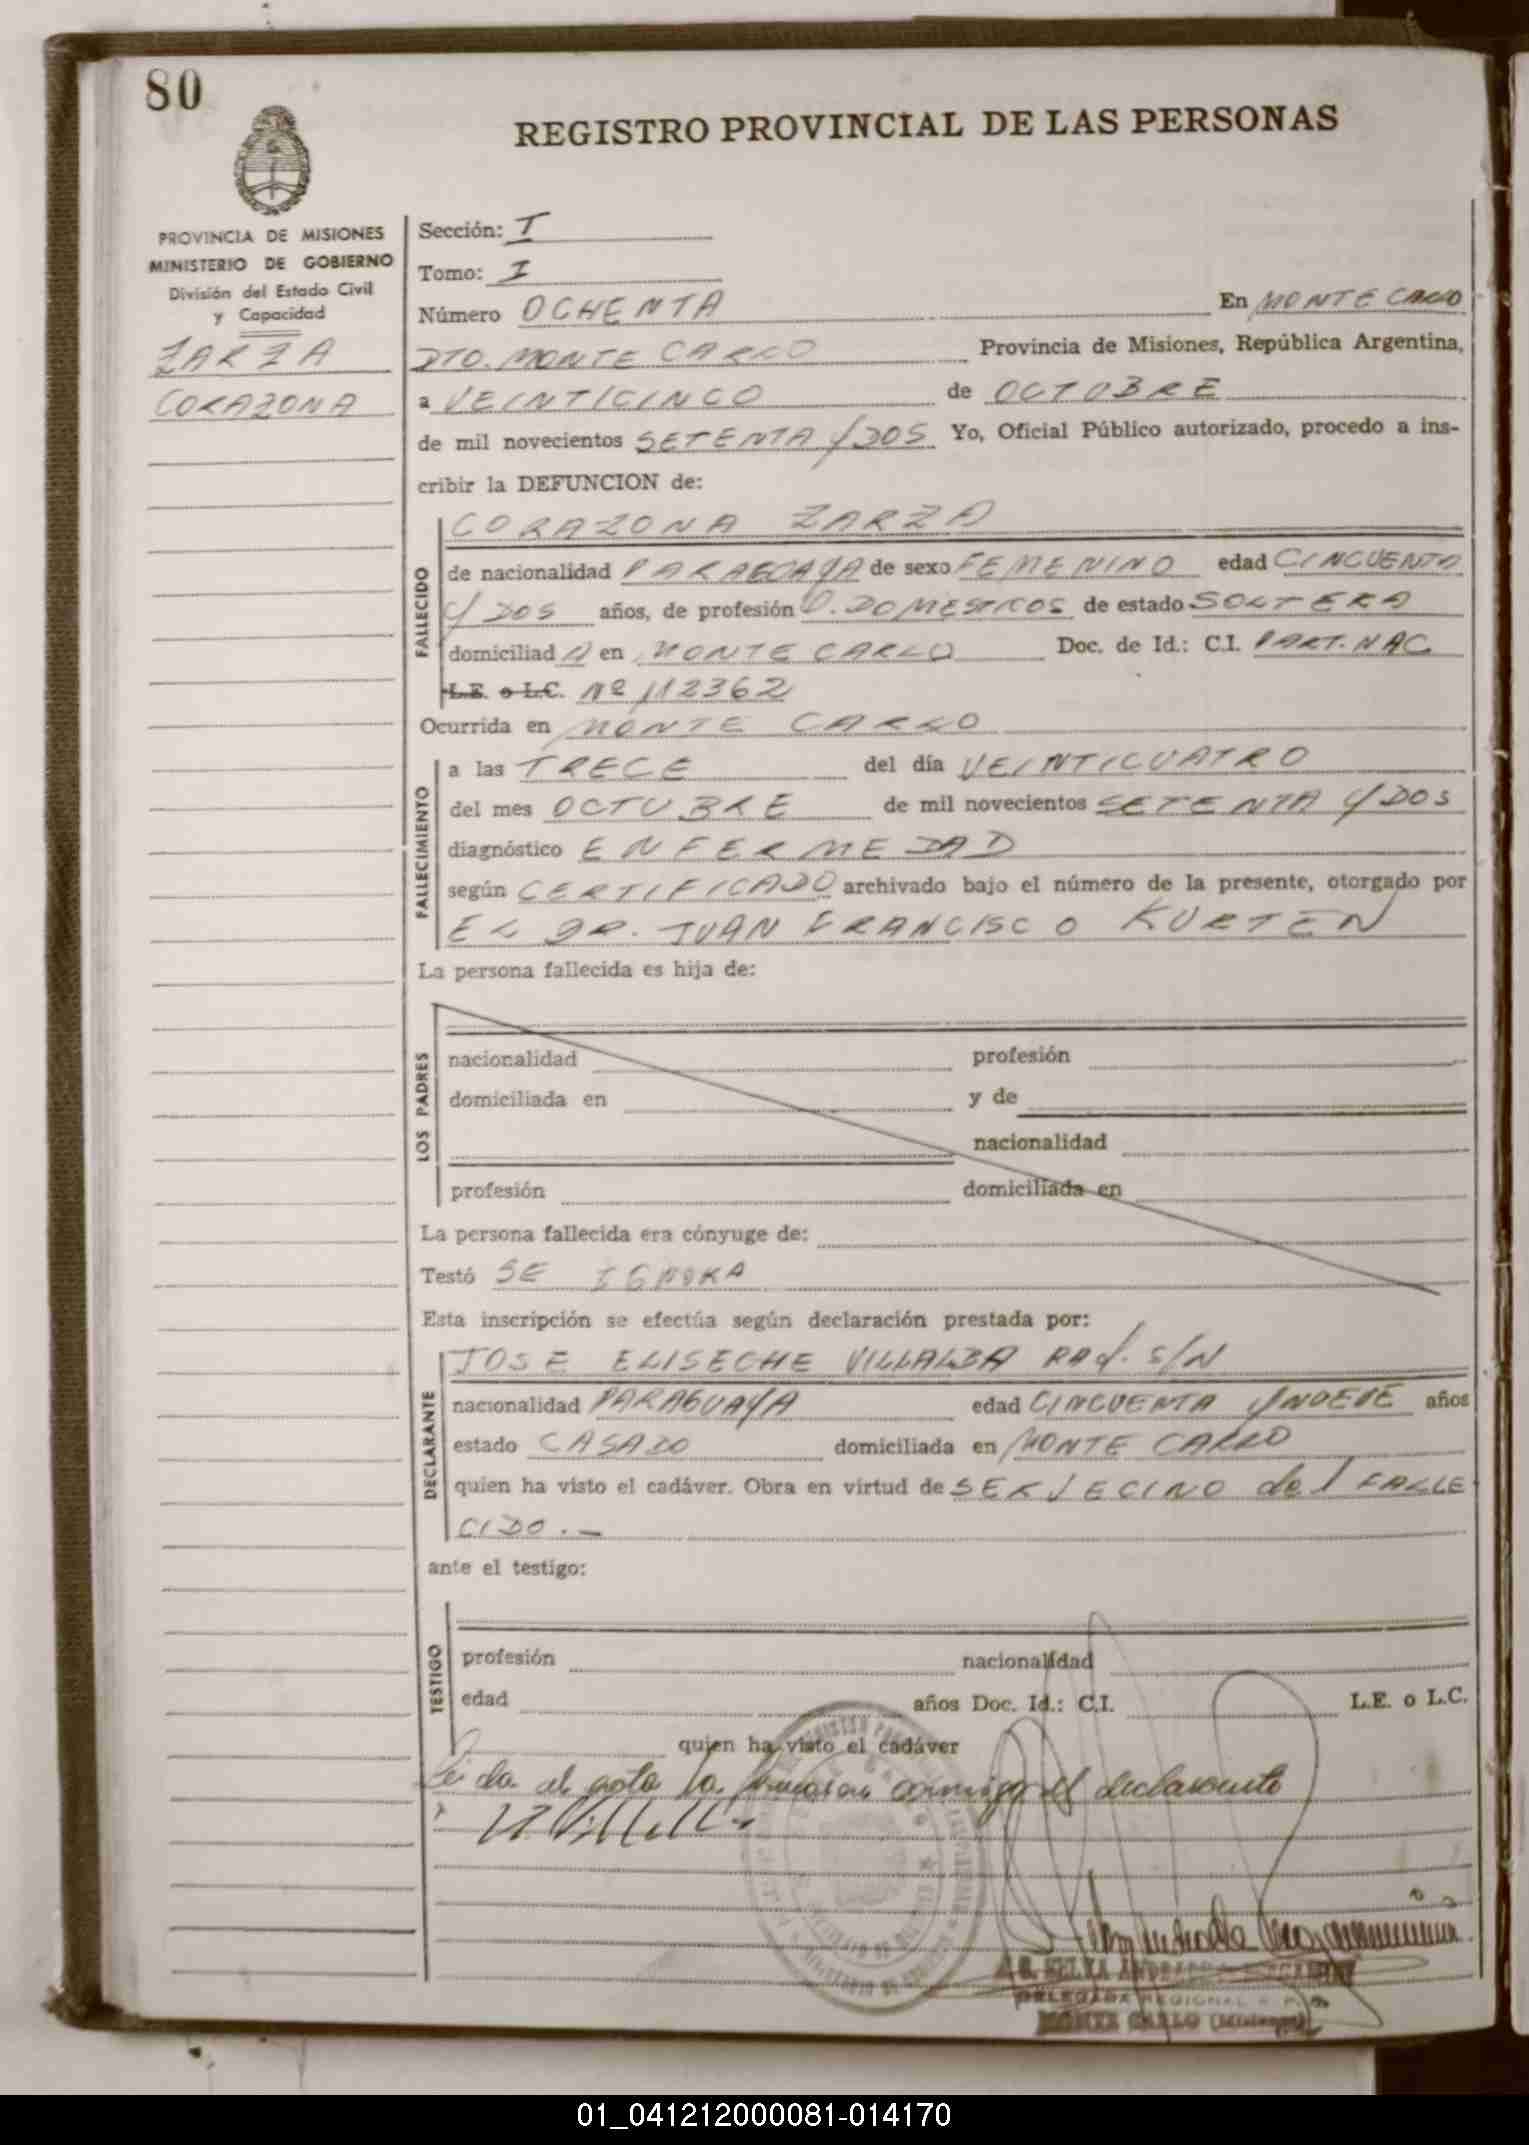 80
REGISTRO PROVINCIAL DE LAS PERSONAS
PROVINCIA DE MISIONES
MINISTERIO DE GOBIERNO
División del Estado Civil
y Capacidad
ZARZA
CORAZONA
Sección: I
Tomo: I
Número OCHENTA En MONTE CARLO
DTO. MONTE CARLO Provincia de Misiones, República Argentina,
a VEINTICINCO de OCTUBRE
de mil novecientos SETENTA Y DOS Yo, Oficial Público autorizado, procedo a ins-
cribir la DEFUNCION de:
FALLECIDO
CORAZONA ZARZA
de nacionalidad PARAGUAYA de sexo FEMENINO edad CINCUENTA
Y DOS años, de profesión Q. DOMESTICOS de estado SOLTERA
domiciliad A en MONTE CARLO Doc. de Id.: C.I. PART. NAC
L.E. o L.C. Nº 112362
Ocurrida en MONTE CARLO
FALLECIMIENTO
a las TRECE del día VEINTICUATRO
del mes OCTUBRE de mil novecientos SETENTA Y DOS
diagnóstico ENFERMEDAD
según CERTIFICADO archivado bajo el número de la presente, otorgado por
EL DR. JUAN FRANCISCO KURTEN
La persona fallecida es hija de:
LOS PADRES
nacionalidad profesión
domiciliada en y de
nacionalidad
profesión domiciliada en
La persona fallecida era cónyuge de:
Testó SE IGNORA
Esta inscripción se efectúa según declaración prestada por:
DECLARANTE
JOSE ELISECHE VILLALBA RAd. S/N
nacionalidad PARAGUAYA edad CINCUENTA Y NUEVE años
estado CASADO domiciliada en MONTE CARLO
quien ha visto el cadáver. Obra en virtud de SER VECINO del FALLE
CIDO.—
ante el testigo:
TESTIGO
profesión nacionalidad
edad años Doc. Id.: C.I. L.E. o L.C.
quien ha visto el cadáver
Leida el acta la firman conmigo el declarante
DELEGADA REGIONAL
MONTE CARLO (Misiones)
01_041212000081-014170